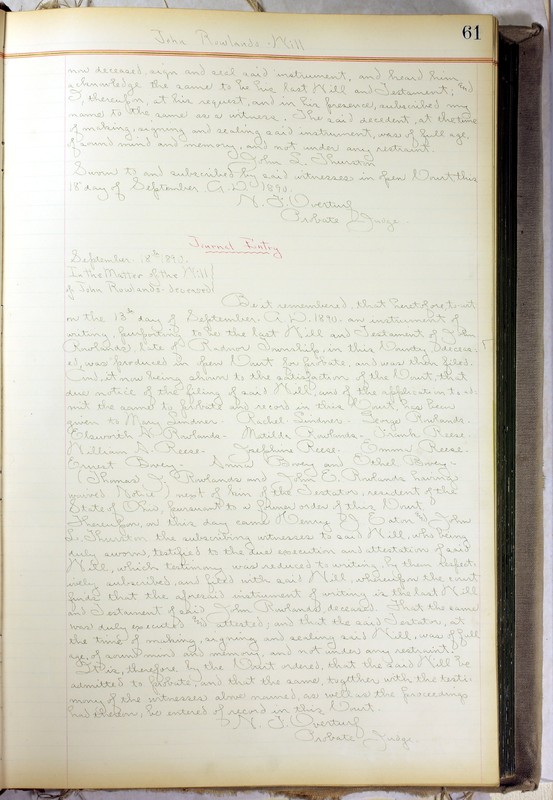 61
John Rowlands - Will
now deceased, sign and seal said instrument, and heard him
acknowledge the same to be his last Will and Testament; &
I, thereupon, at his request, and in his presence, subscribed my
name to the same as a witness. The said decedent, at the time
of making, signing and sealing said instrument, was of full age,
of sound mind and memory, and not under any restraint.
John L. Thurston
Sworn to and subscribed by said witnesses in open Court this
18th day of September. A.D. 1890.
N. F. Overturf
Probate Judge.
Journal Entry
September 18th 1890.
In the Matter of the Will
of John Rowlands deceased
Be it remembered, that heretofore, to wit
on the 13th day of September. A.D. 1890. an instrument of
writing, purporting to be the last Will and Testament of John
Rowlands, late of Radnor Township, in this County, deceas-
ed, was produced in open Court for probate, and was then filed.
And, it now being shown to the satisfaction of the Court, that
due notice of the filing of said Will, and of the application to ad-
mit the same to probate and record in this Court, has been
given to Mary Lindner. Rachel Lindner. George Rowlands.
Elsworth H. Rowlands. Matilda Rowlands. Frank Reese.
William A. Reese. Josephine Reese. Emma Reese.
Ernest Bovey. Anna Bovey and Ethel Bovey -
(Thomas J. Rowlands and John E. Rowlands having
waived Notice) next of kin of the Testator, resident of the
State of Ohio, pursuant to a former order of this Court.
Thereupon, on this day came Henry Eaton & John
L. Thurston the subscribing witnesses to said Will, who being
duly sworn, testified to the due execution and attestation of said
Will, which testimony was reduced to writing, by them respect-
ively, subscribed, and filed with said Will, whereupon the court
finds that the aforesaid instrument of writing is the last Will
and Testament of said John Rowlands, deceased. That the same
was duly executed & attested; and that the said Testator, at
the time of making, signing and sealing said Will, was of full
age, of sound mind and memory, and not under any restraint.
It is, therefore by the Court ordered, that the said Will be
admitted to probate, and that the same, together with the testi-
mony of the witnesses above named, as well as the proceedings
had thereon, be entered of record in this Court.
N. F. Overturf
Probate Judge.